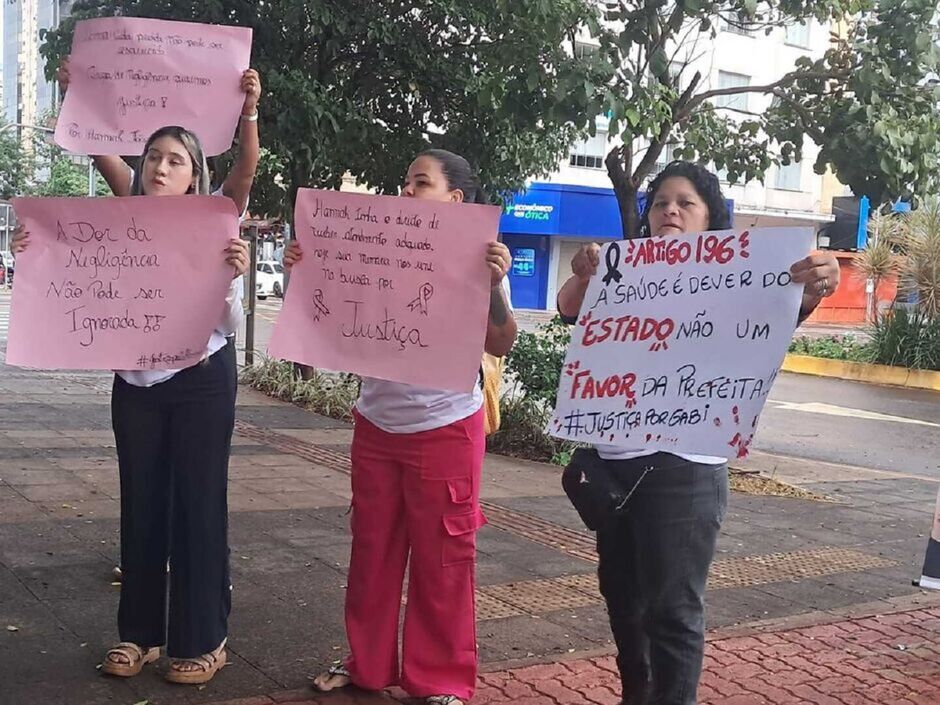 Uma vida perdida não pode ser
esquecida
Casos de Negligência queremos
justiça!
Por Hannah
A Dor da
Negligência
Não Pode ser
Ignorada !!
Hannah tinha o direito de
receber atendimento adequado.
Hoje sua memória nos une
na busca por
Justiça
ARTIGO 196
A SAÚDE É DEVER DO
ESTADO NÃO UM
FAVOR DA PREFEITA
#JUSTIÇA POR GABI
ECONÔMICO
ÓTICA